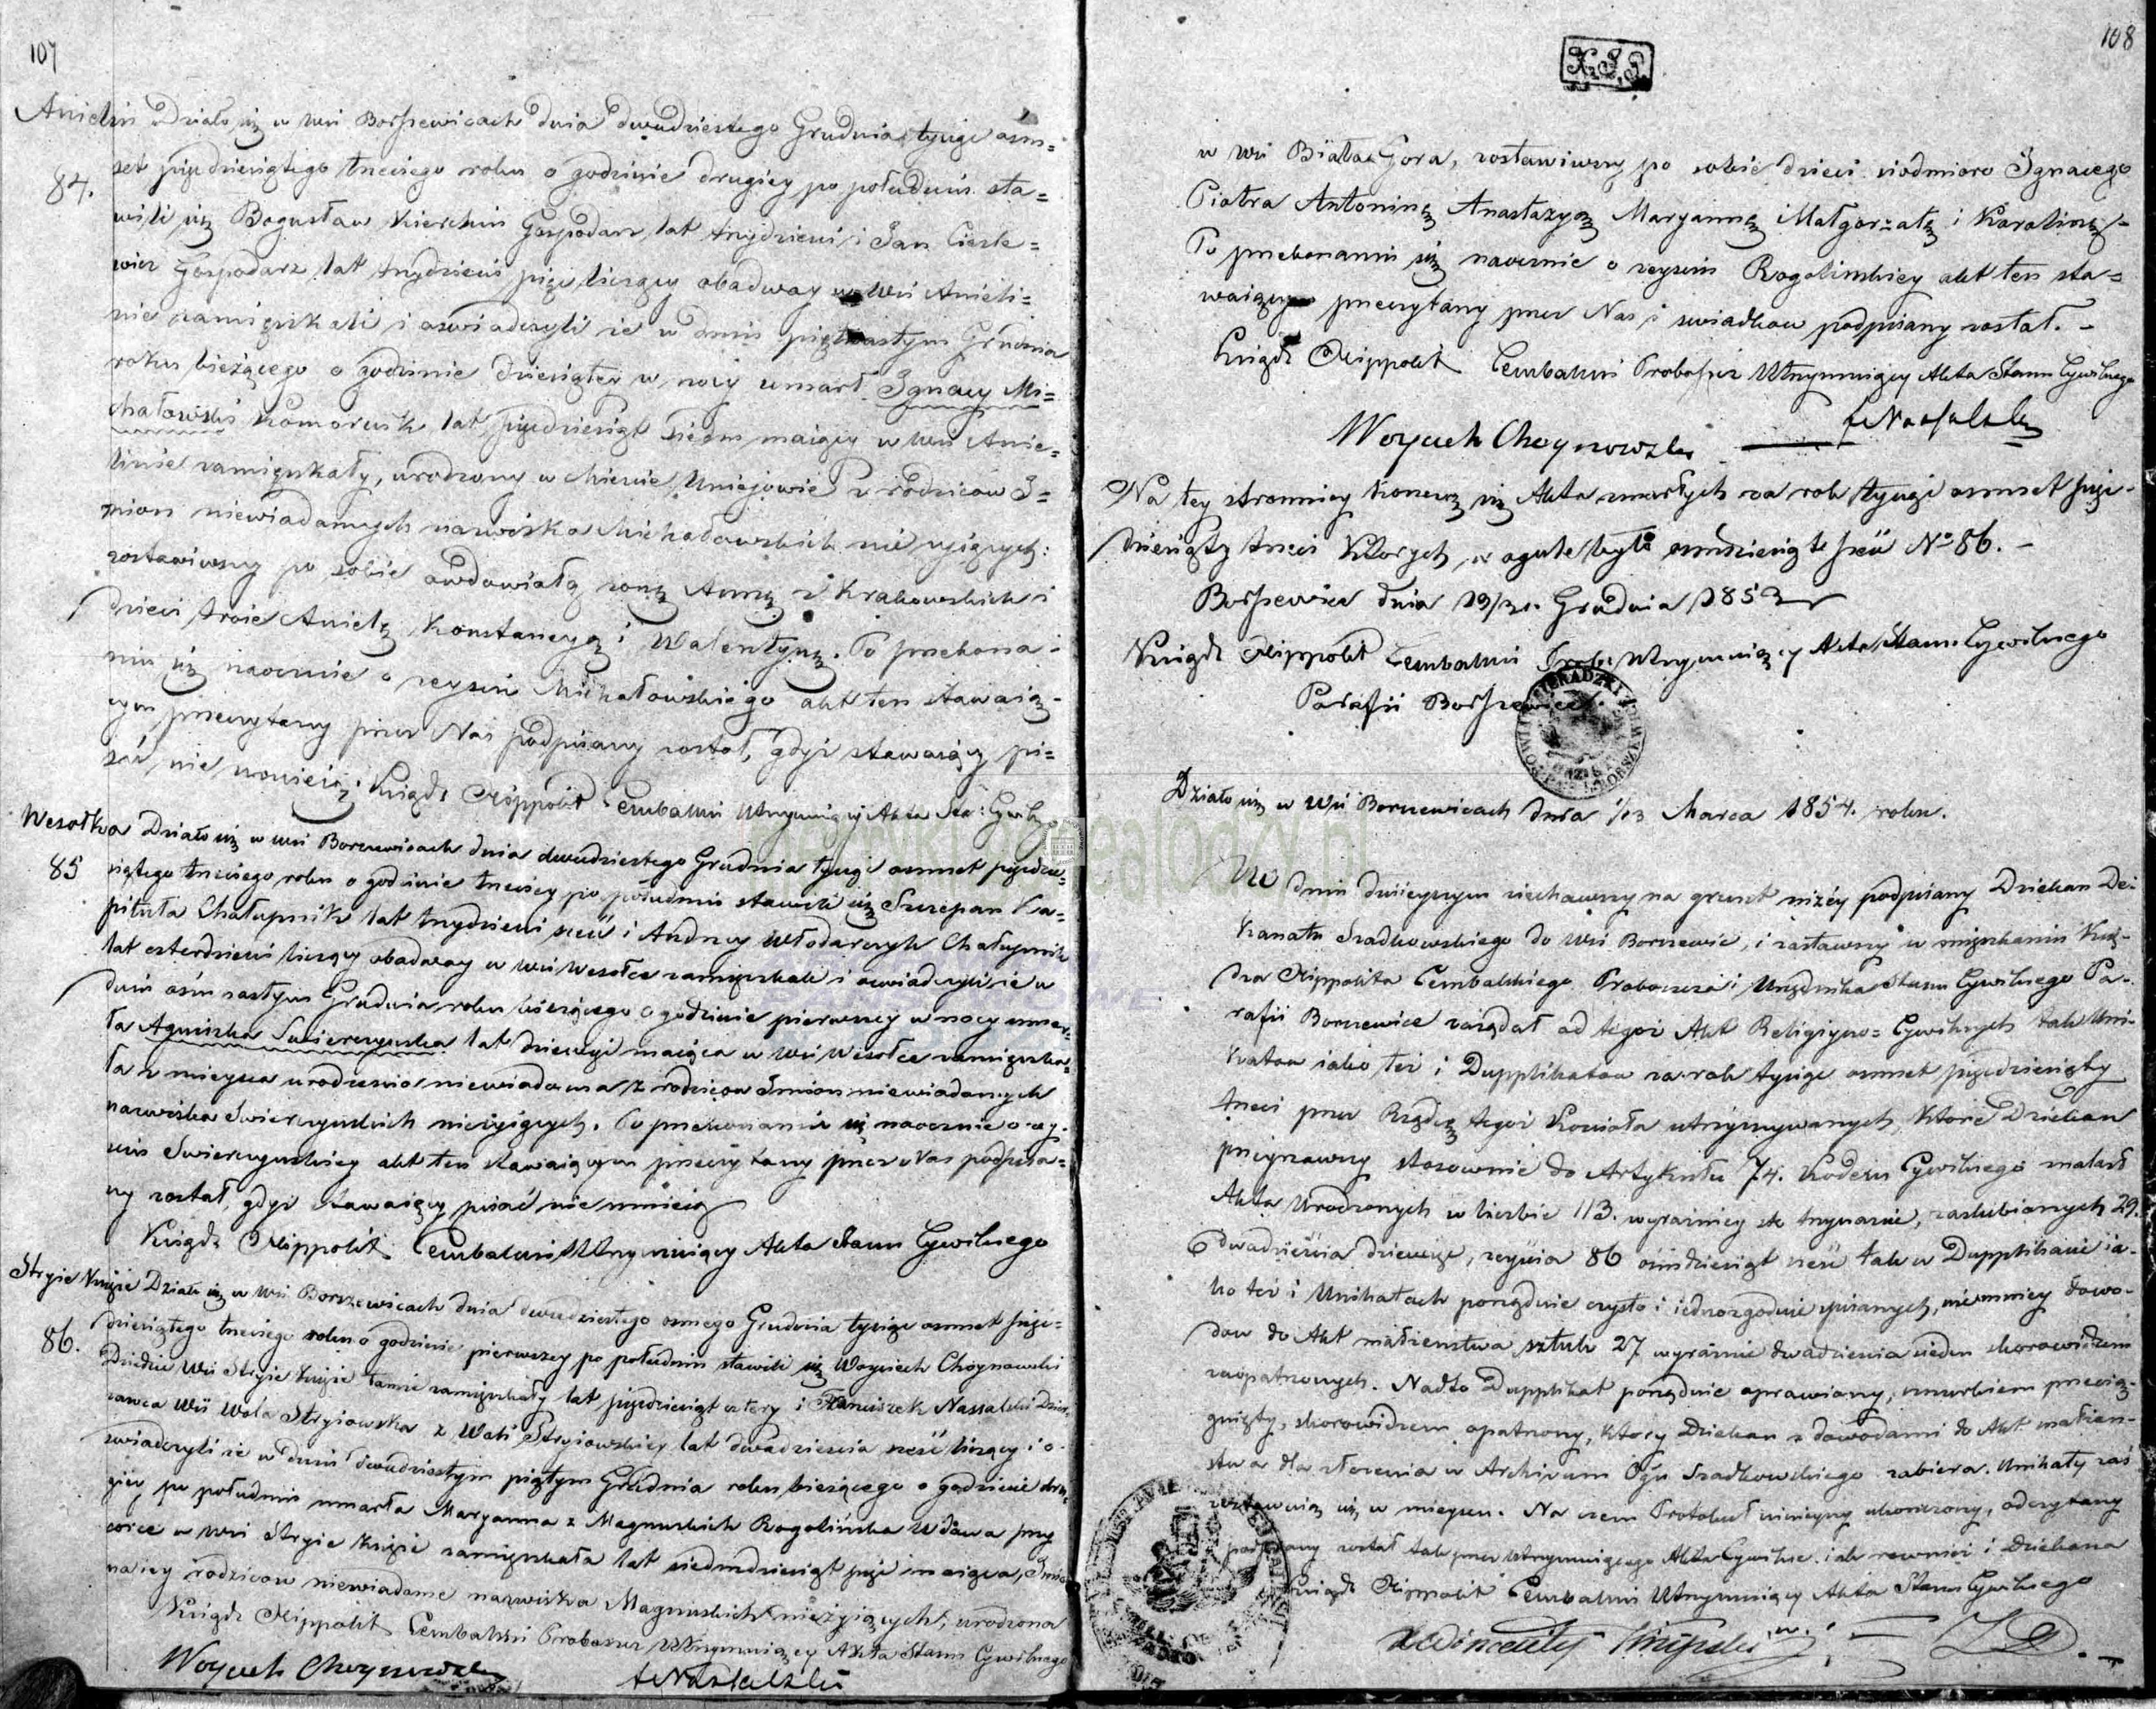 107
Anielin Działo się w wsi Borszewicach dnia dwudziestego Grudnia tysiąc ośm=
84.
set pięćdziesiątego trzeciego roku o godzinie drugiey po południu sta=
wili się Bogusław Kierchin Gospodarz lat trzydzieści i Jan Ciesle=
wicz Gospodarz lat trzydzieści pięć liczący obadway w Wsi Anieli=
nie zamieszkali i oswiadczyli że w dniu piętnastym Grudnia
roku bieżącego o godzinie dziesiątey w nocy umarł Ignacy Mi=
chałowski Komornik lat pięćdziesiąt siedm maiący w wsi Anie=
linie zamieszkały, urodzony w Miescie Uniejowie z rodziców I=
mion niewiadomych nazwiska Michałowskich nie żyiących:
zostawiwszy po sobie owdowiałą żonę Annę z Krakowskich i
dzieci troie Anielę Konstancyą i Walentynę. Po przekona=
niu się naocznie o zeysciu Michałowskiego akt ten stawaią=
cym przeczytany przez Nas podpisany został, gdyż stawaiący pi=
sać nie umieią. Ksiądz Hippolit Cembalski Utrzymuiący Akta Sta: Cywilnego
Wesołka Działo się w wsi Borszewicach dnia dwudziestego Grudnia tysiąc osmset pięćdzie=
85
siątego trzeciego roku o godzinie trzeciey po południu stawili się Szczepan Ka=
pituła Chałupnik lat trzydzieści sześć i Andrzey Włodarczyk Chałupnik
lat czterdzieści liczący obadway w wsi Wesołce zamieszkali i oswiadczyli że w
dniu ośmnastym Grudnia roku bieżącego o godzinie pierwszey w nocy umar=
ła Agnieszka Swierczynska lat dziewięć maiąca w wsi Wesołce zamieszka=
ła z mieysca urodzenia niewiadoma z rodziców Imion niewiadomych
nazwiska Swierczynskich nieżyiących. Po przekonaniu się naocznie o zey=
sciu Swierczynskiey akt ten stawaiącym przeczytany przez Nas podpisa=
ny został, gdyż stawaiący pisać nie umieią
Ksiądz Hippolit Cembalski Utrzymuiący Akta Stanu Cywilnego
Stryie Xsięże Działo się w wsi Borszewicach dnia dwudziestego osmego Grudnia tysiąc osmset pięć=
86.
dziesiątego trzeciego roku o godzinie pierwszey po południu stawili się Woyciech Choynowski
Dziedzic Wsi Stryie Xsięże tamże zamieszkały lat pięćdziesiąt cztery i Franciszek Nassalski Dzier=
zawca Wsi Wola Stryiowska z Woli Stryiowskiey lat dwadzieścia sześć liczący i o=
swiadczyli że w dniu dwudziestym piątym Grudnia roku bieżącego o godzinie dru=
giey po południu umarła Maryanna z Magnuskich Rogolińska Wdowa przy
corce w wsi Stryie Xsięże zamieszkała lat siedmdziesiąt pięć maiąca, Imio=
na iey rodziców niewiadome nazwiska Magnuskich nieżyiących, urodzona
Ksiądz Hippolit Cembalski Proboszcz Utrzymuiący Akta Stanu Cywilnego
Woyciech Choynowski
F Nassalski
108
w wsi Białagora, zostawiwszy po sobie dzieci siedmioro Ignacego
Piotra Antoninę Anastazyą Maryannę Małgorzatę i Karolinę.
Po przekonaniu się naocznie o zeysciu Rogolinskiey akt ten sta=
waiącym przeczytany przez Nas i swiadkow podpisany został. -
Ksiądz Hippolit Cembalski Proboszcz Utrzymuiący Akta Stanu Cywilnego
Woyciech Choynowski F Nassalski
Na tey stronnicy kończą się Akta zmarłych za rok tysiąc osmset pięć=
dziesiąty trzeci których w ogule było osmdziesiąt sześć No 86. -
Borszewice dnia 19/31. Grudnia 1853
Ksiądz Hippolit Cembalski Prob: Utrzymuiący Akta Stanu Cywilnego
Parafii Borszewice.
Działo się w Wsi Borszewicach dnia 1/13 Marca 1854. roku.
W dniu dzisieyszym ziechawszy na grunt niżey podpisany Dziekan De=
kanatu Szadkowskiego do Wsi Borszewic, i zastawszy w mieszkaniu Xię=
dza Hippolita Cembalskiego Proboszcza i Urzędnika Stanu Cywilnego Pa=
rafii Borszewice zażądał od tegoż Akt Religiyno=Cywilnych tak Uni=
katow iako też i Dupplikatow za rok tysiąc osmset pięćdziesiąty
trzeci przez Rządcę tegoż Kościoła utrzymywanych, które Dziekan
przeyrzawszy stosownie do Artykułu 74. Kodexu Cywilnego znalazł
Akta Urodzonych w liczbie 113. wyrazniey sto trzynascie, zaslubionych 29.
dwadzieścia dziewięć, zeyścia 86 ośmdziesiąt sześć tak w Dupplikacie ia=
ko też i Unikatach porządnie czysto i iednozgodnie spisanych, niemniey dowo=
dow do Akt małżenstwa sztuk 27 wyraznie dwadzieścia siedm skorowidzem
zaopatrzonych. Nadto Dupplikat porządnie oprawiony, sznurkiem przecią=
gnięty, skorowidzem opatrzony, który Dziekan z dowodami do Akt małżen=
stwa dla złożenia w Archiwum Ogu Szadkowskiego zabiera. Unikaty zaś
zostawuią się w mieyscu. Na czem Protokuł ninieyszy ukończony, odczytany
podpisany został tak przez utrzymuiącego Akta Cywilne iak rownież i Dziekana
Ksiądz Hippolit Cembalski Utrzymuiący Akta Stanu Cywilnego